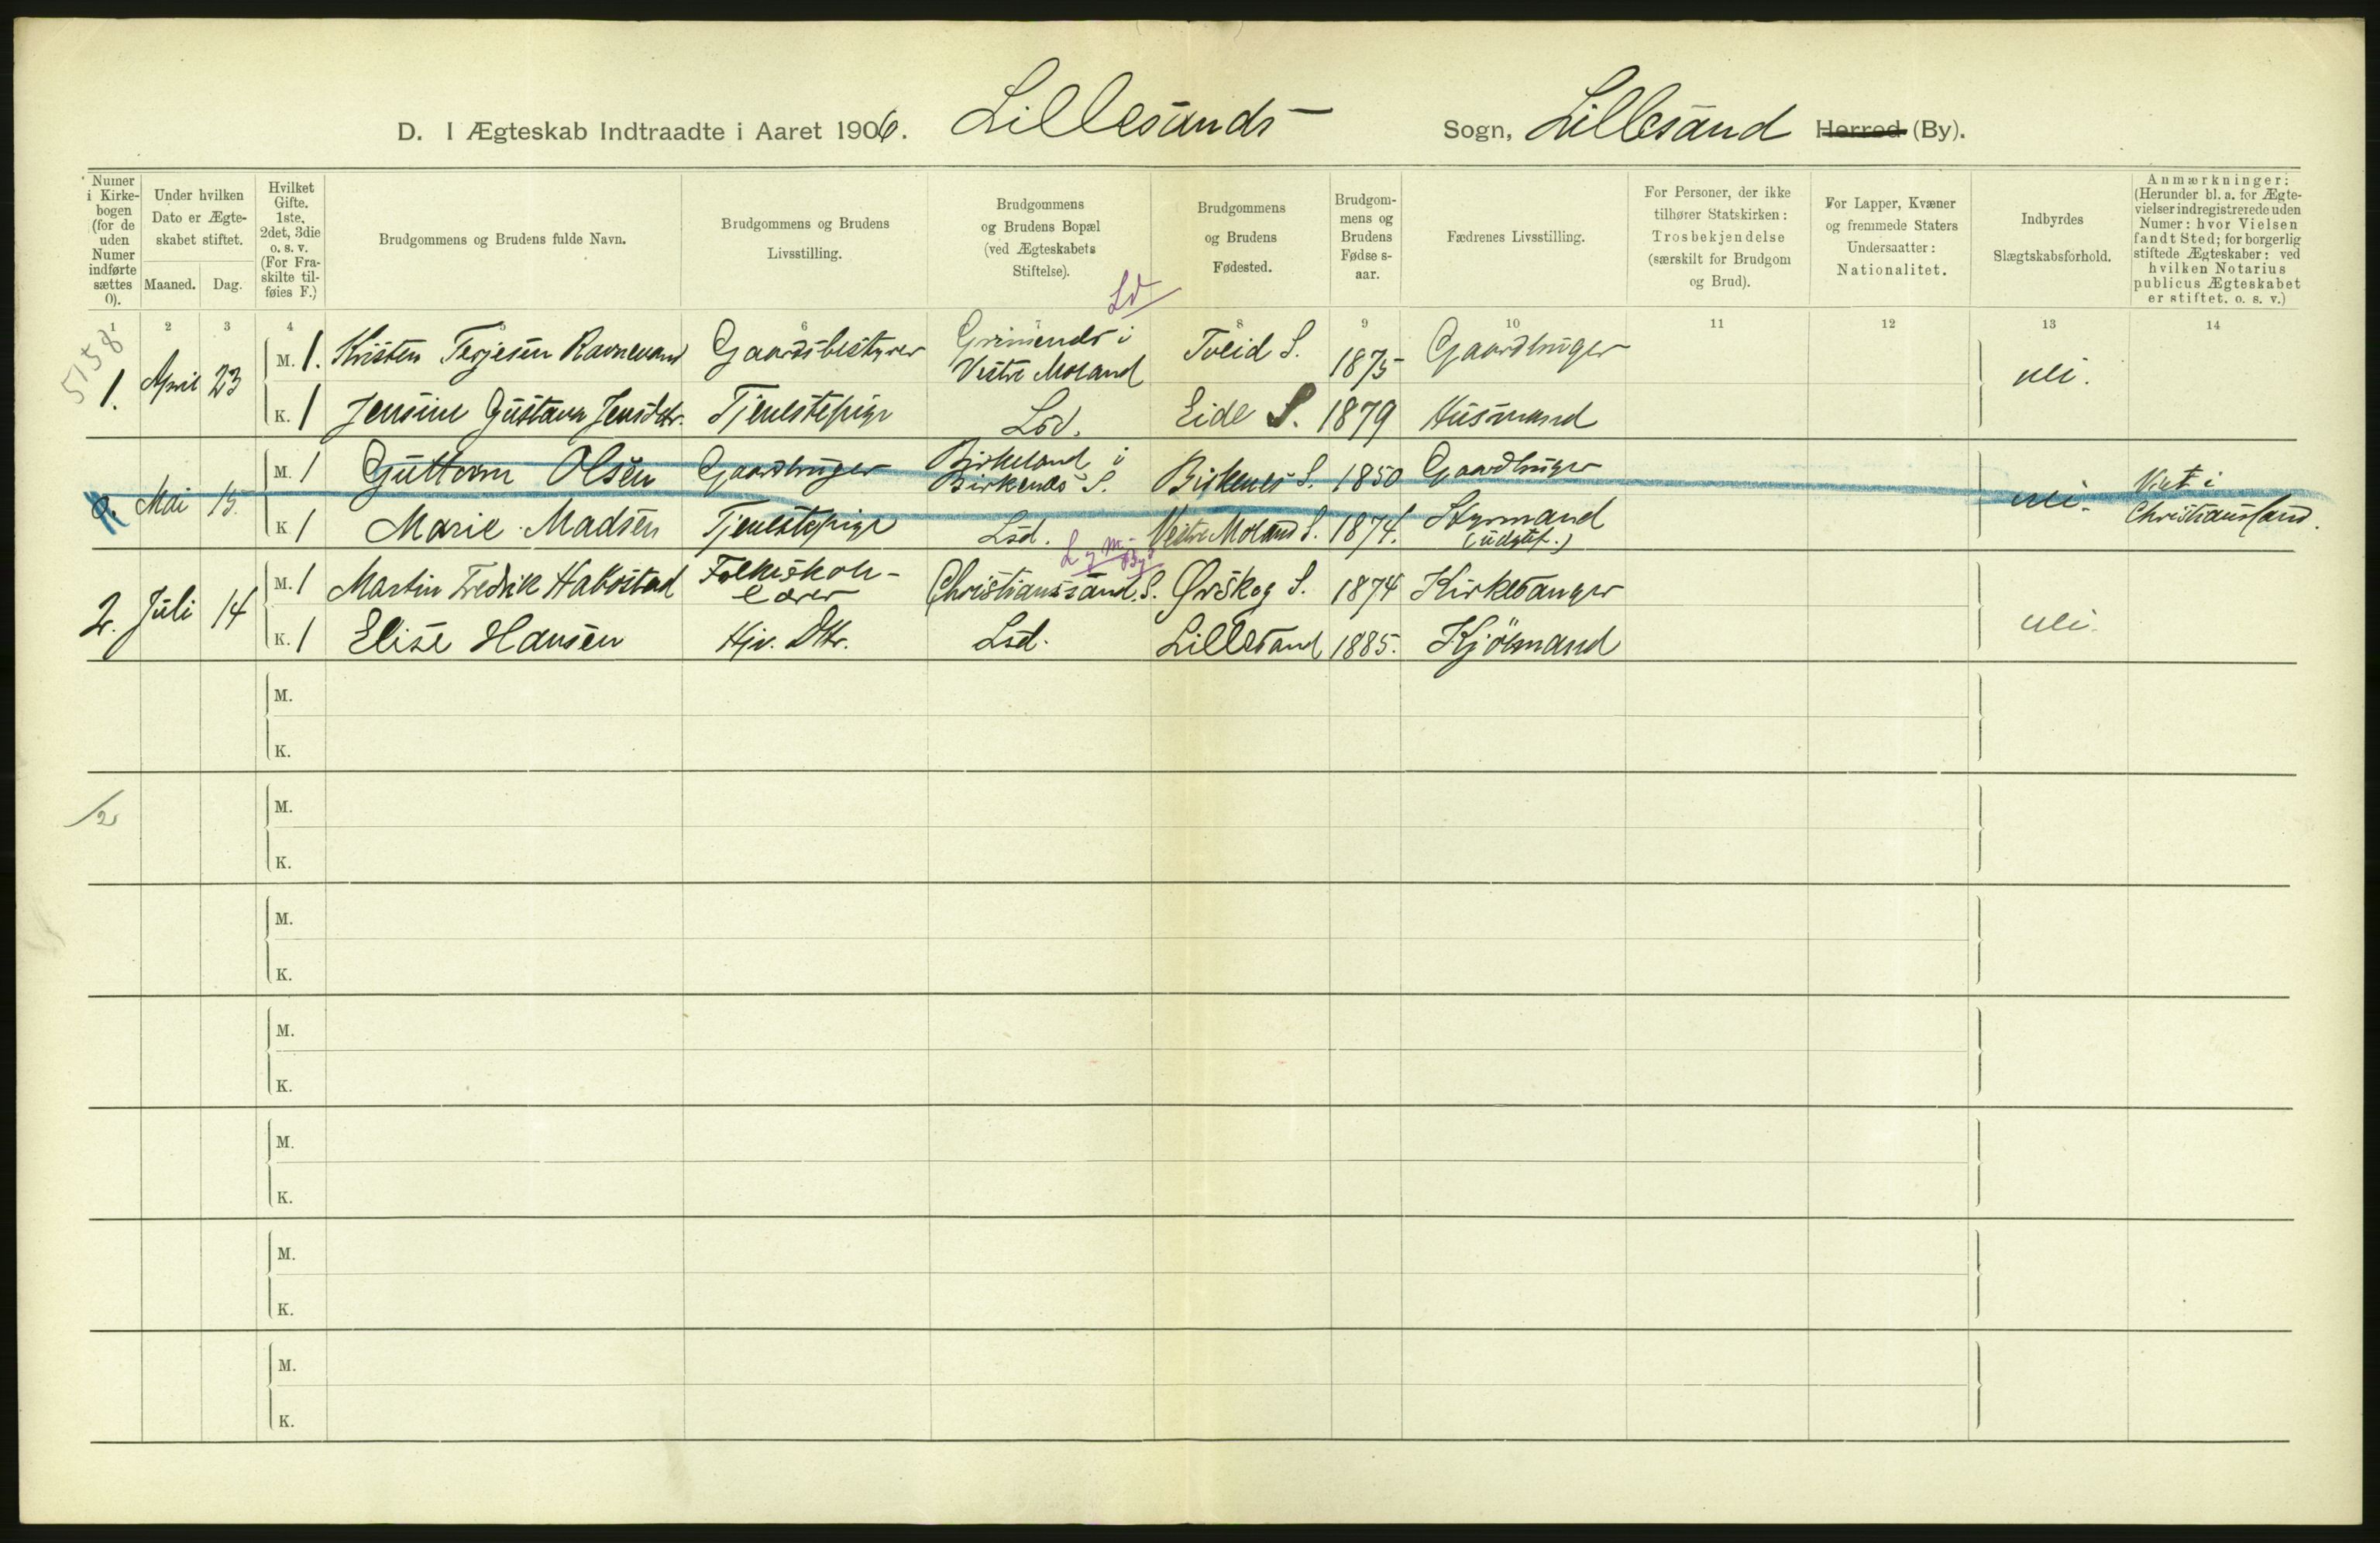 D. I Ægteskab Indtraadte i Aaret 1906. Lillesands Sogn, Lillesand Herred (By).
Numer i Kirkebogen (for de uden Numer indførte sættes 0).
Under hvilken Dato er Ægteskabet stiftet.
Maaned. Dag.
Hvilket Gifte. 1ste, 2det, 3die o. s. v. (For Fraskilte tilføies F.)
Brudgommens og Brudens fulde Navn.
Brudgommens og Brudens Livsstilling.
Brudgommens og Brudens Bopæl (ved Ægteskabets Stiftelse).
Brudgommens og Brudens Fødested.
Brudgommens og Brudens Fødselsaar.
Fædrenes Livsstilling.
For Personer, der ikke tilhører Statskirken: Trosbekjendelse (særskilt for Brudgom og Brud).
For Lapper, Kvæner og fremmede Staters Undersaatter: Nationalitet.
Indbyrdes Slægtskabsforhold.
Anmærkninger: (Herunder bl. a. for Ægtevielser indregistrerede uden Numer: hvor Vielsen fandt Sted; for borgerlig stiftede Ægteskaber: ved hvilken Notarius publicus Ægteskabet er stiftet. o. s. v.)
Ld
1 2 3 4 5 6 7 8 9 10 11 12 13 14
5158
1. April 23 M. 1. Kristen Terjesen Ravnevand Gaardsbestyrer Grimenes i Vestre Moland Tveid S. 1875 Gaardbruger nei.
K. 1 Jensine Gustava Jensdtr. Tjenestepige Lsd. Eide S. 1879 Husmand
0. Mai 15. M. 1 Guttorm Olsen Gaardbruger Birkeland i Birkenes S. Birkenes S. 1850 Gaardbruger nei. Viet i Christianssand.
K 1 Marie Madsen Tjenestepige Lsd. Vestre Moland S. 1874. Styrmand (udgtd.)
L g m. - By
2. Juli 14 M. 1 Martin Fredrik Habostad Folkeskolelærer Christianssand. S. Ørskog S. 1874 Kirkesanger nei.
K. 1 Elise Hansen Hjv. Dtr. Lsd. Lillesand 1885. Kjømand
M.
K.
/2
M.
K.
M.
K.
M.
K.
M.
K.
M.
K.
M.
K.